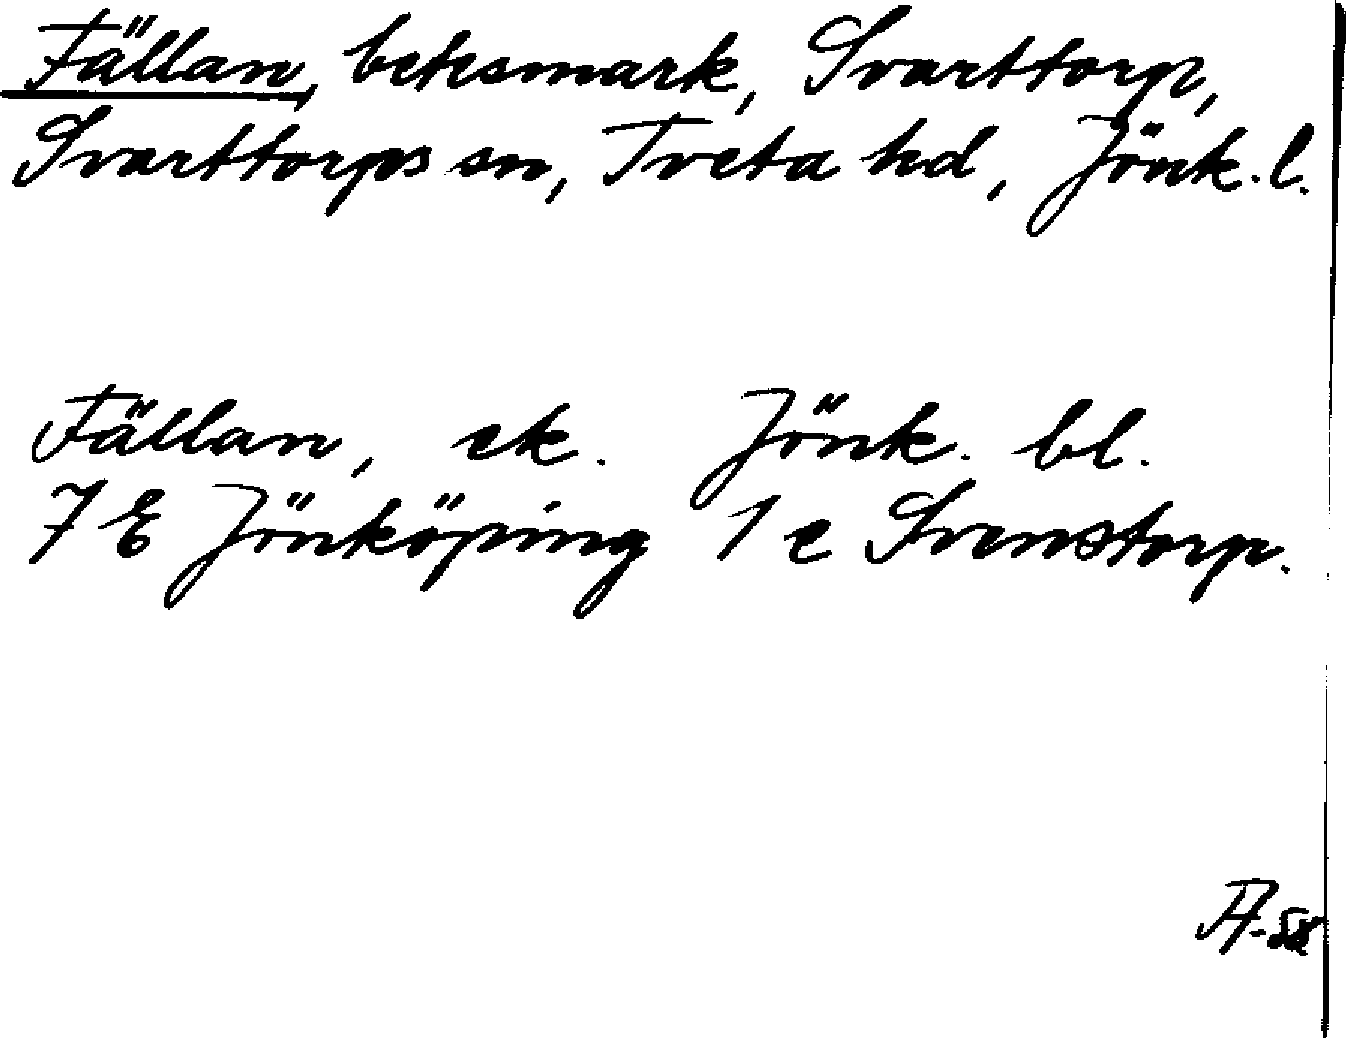 Fällan, betesmark, Svarttorp,
Svarttorps sn, Tveta hd, Jönk. l.
Fällan, ek. Jönk. bl.
7 E Jönköping 1 e Svenstorp.